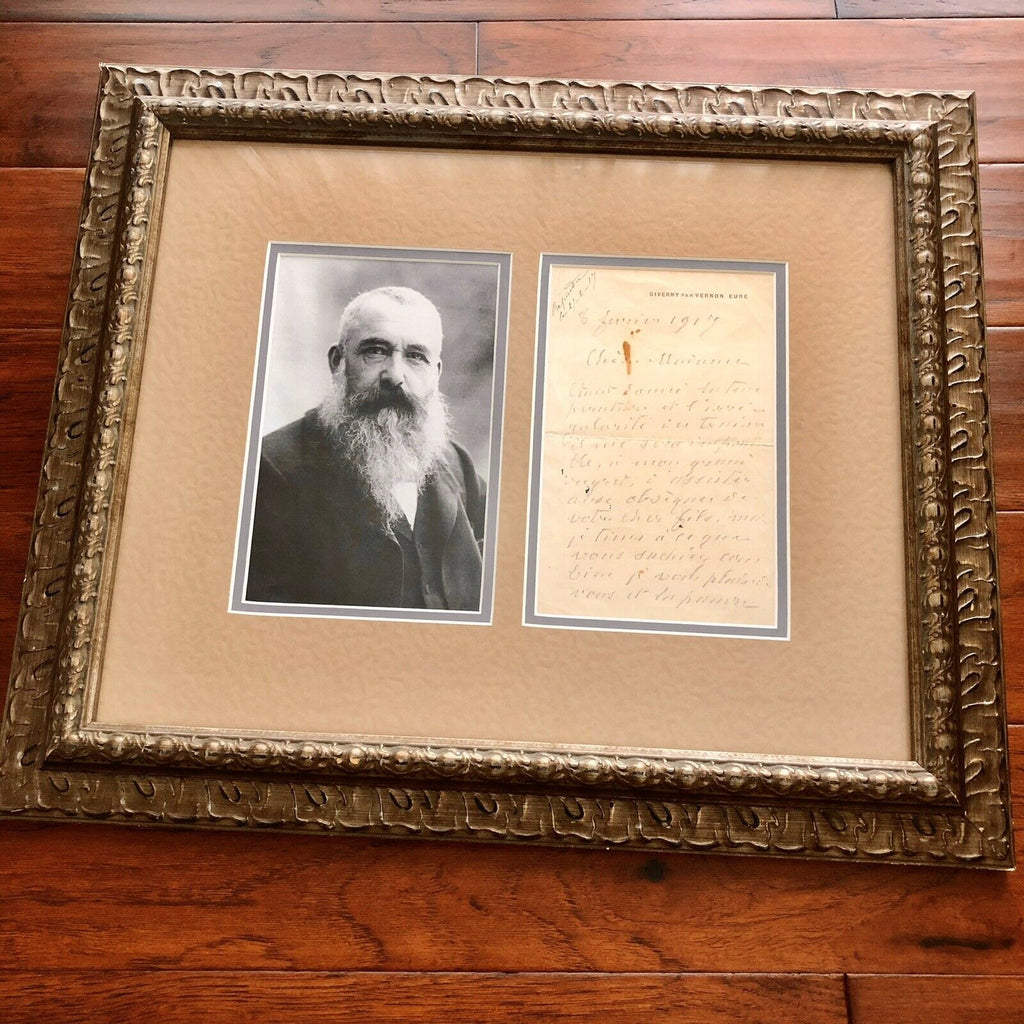 GIVERNY PAR VERNON. EURE
8 février 1917
Chère Madame
Étant donné la tem
pérature et l'irré
gularité des trains
il me sera impossi
ble, à mon grand
regret, d'assister
aux obsèques de
votre cher fils, mais
je tiens à ce que
vous sachiez com
bien je vous plains
vous et la pauvre